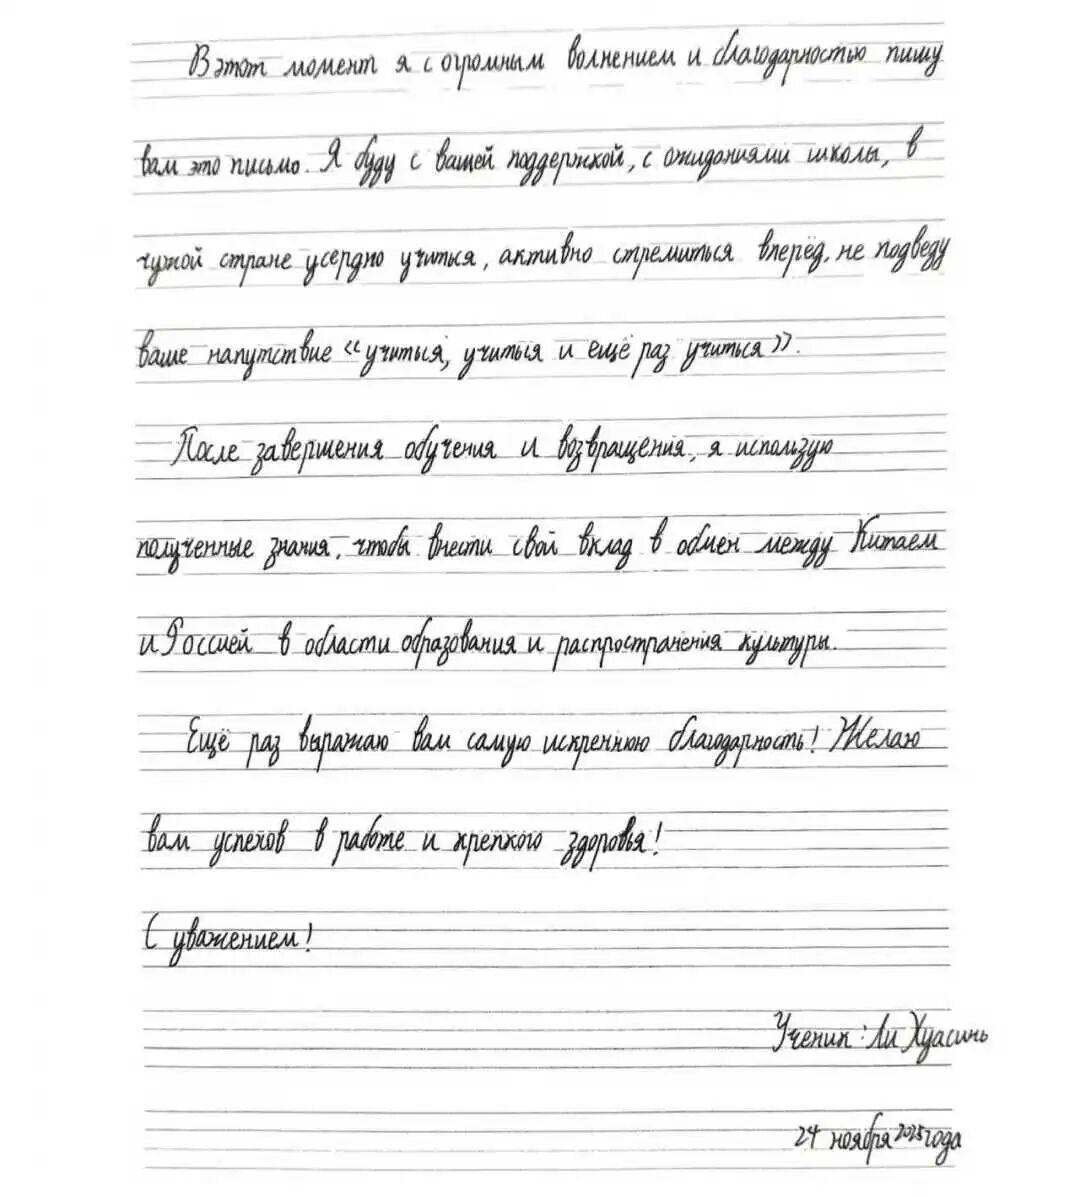 В этот момент я с огромным волнением и благодарностью пишу
вам это письмо. Я буду с вашей поддержкой, с ожиданиями школы, в
чужой стране усердно учиться, активно стремиться вперёд, не подведу
ваше напутствие «учиться, учиться и ещё раз учиться».
После завершения обучения и возвращения, я использую
полученные знания, чтобы внести свой вклад в обмен между Китаем
и Россией в области образования и распространения культуры.
Ещё раз выражаю вам самую искреннюю благодарность! Желаю
вам успехов в работе и крепкого здоровья!
С уважением!
Ученик: Ли Хуасинь
24 ноября 2025 года